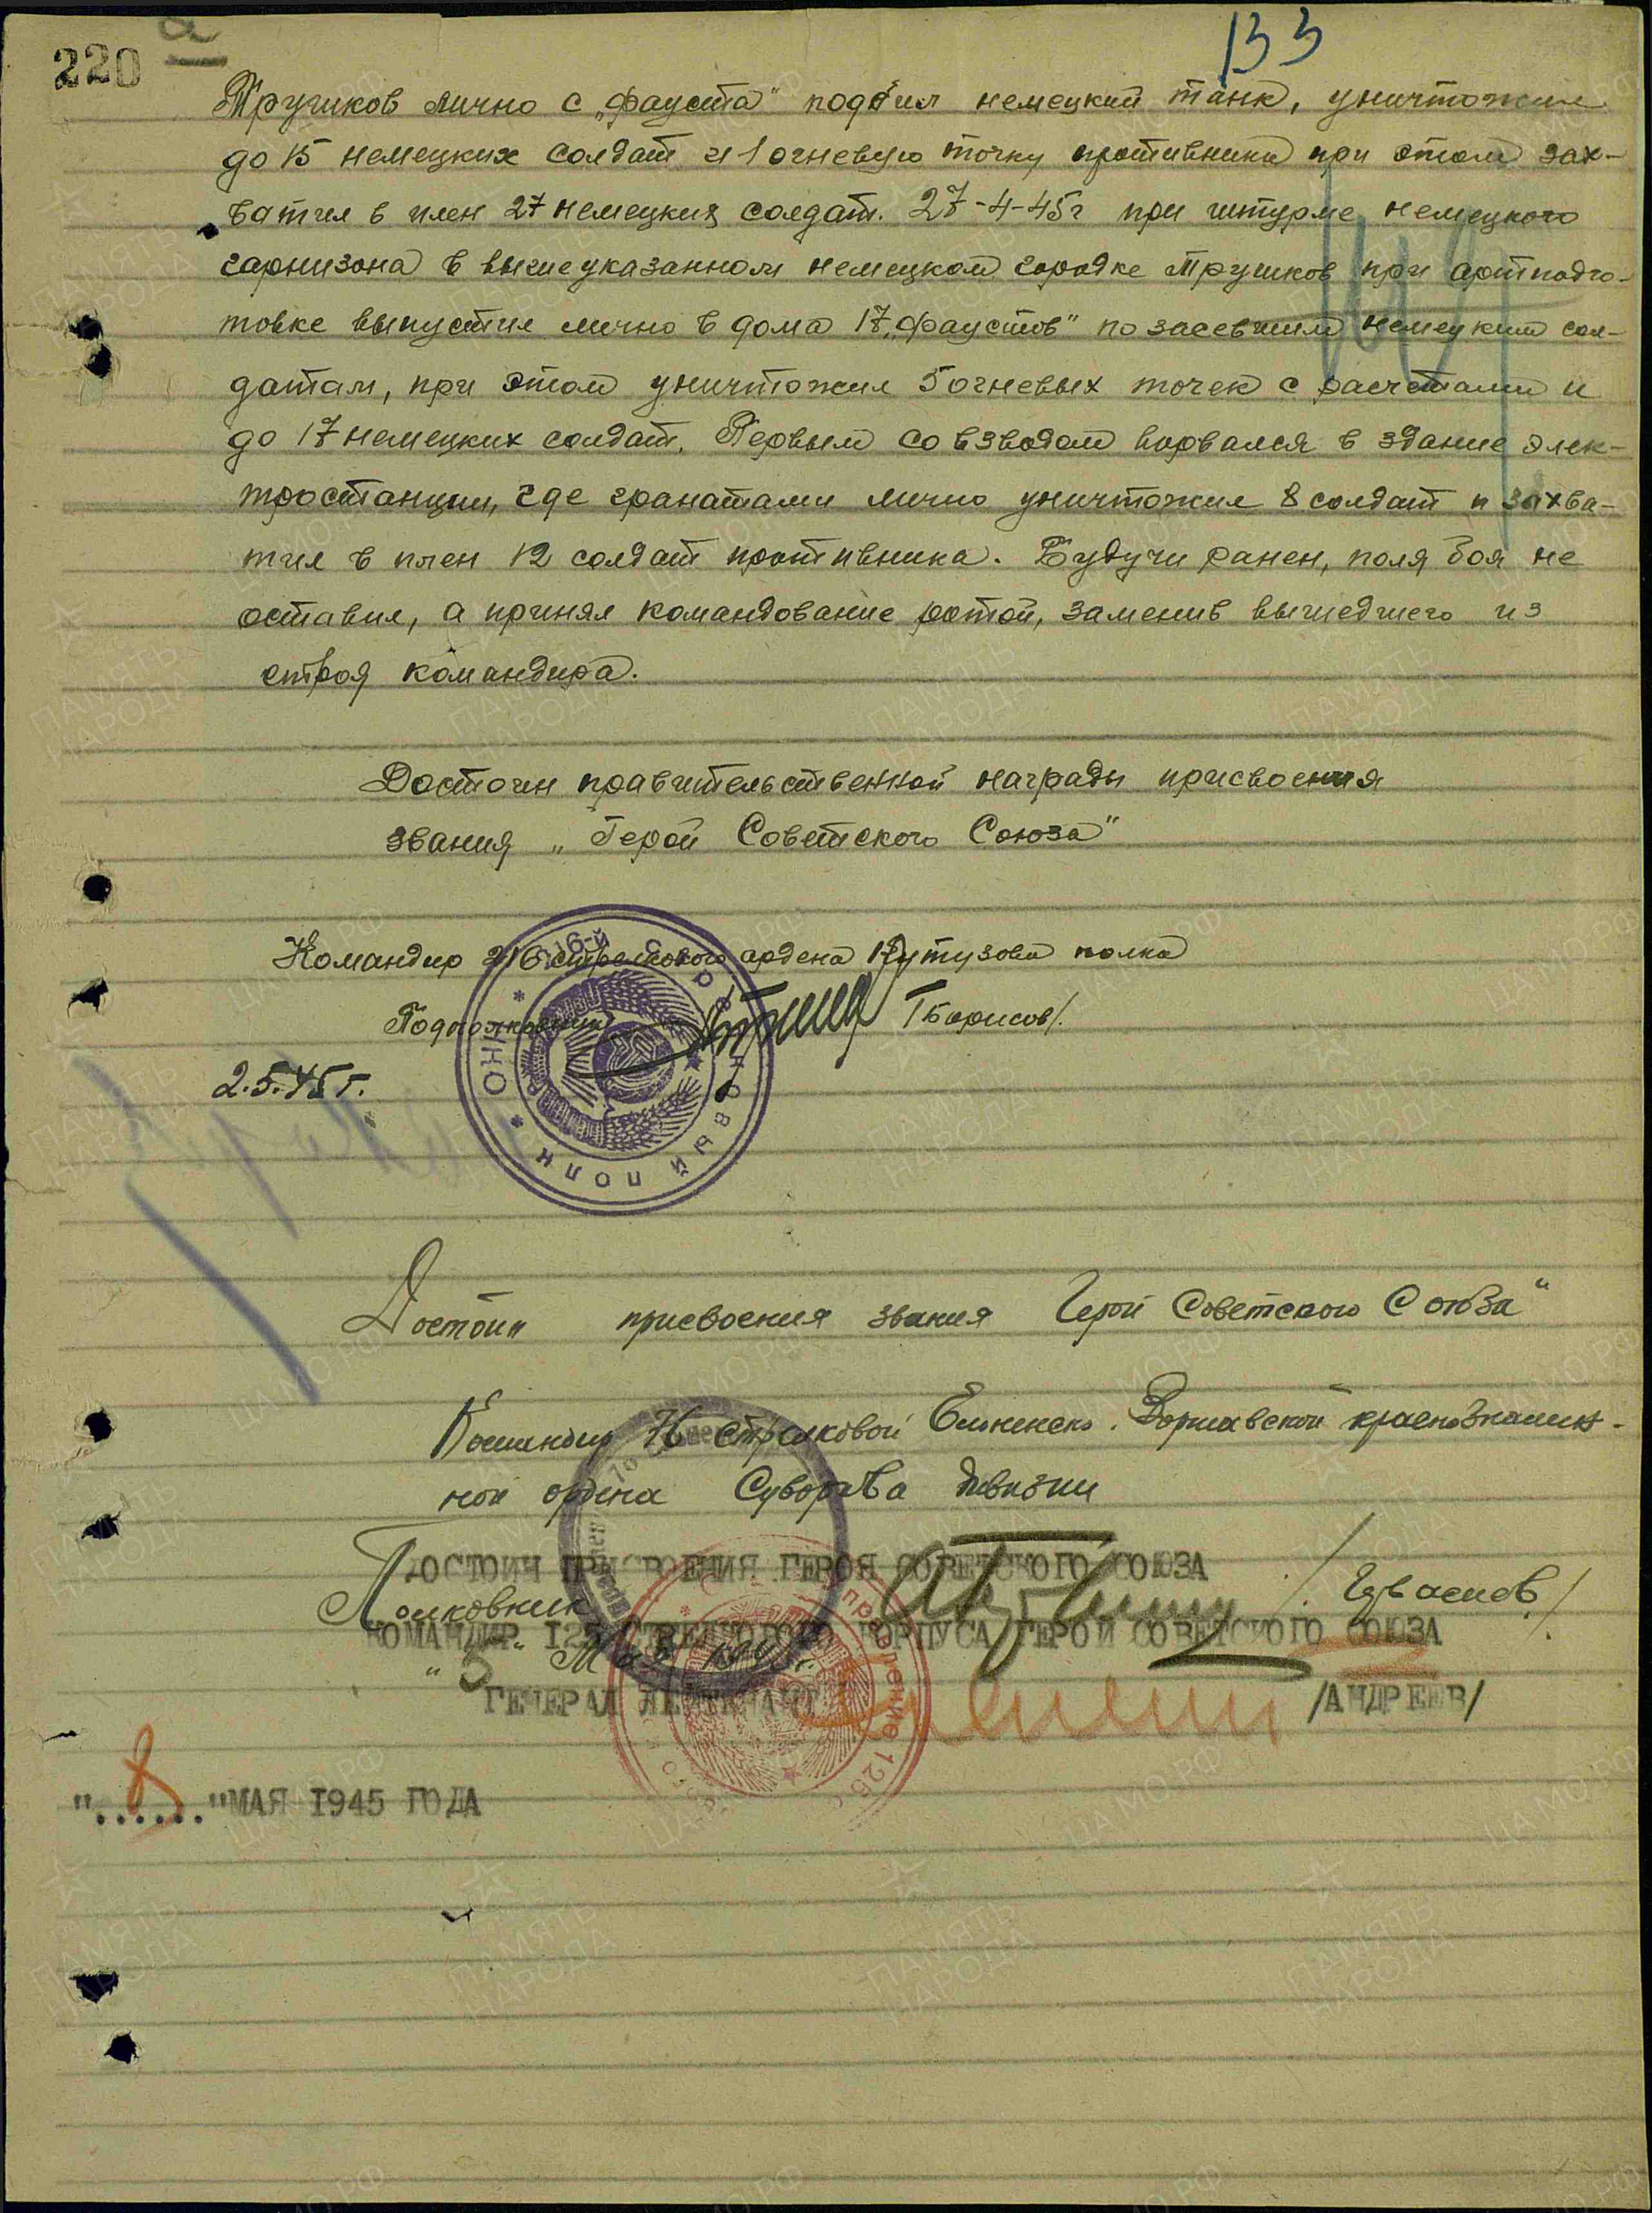 220
133
Трушков лично с „фауста" подбил немецкий танк, уничтожил
до 15 немецких солдат и 1 огневую точку противника при этом зах-
ватил в плен 27 немецких солдат. 27-4-45г при штурме немецкого
гарнизона в вышеуказанном немецком городке Трушков при артподго-
товке выпустил лично в дома 17 „фаустов" по засевшим немецким сол-
датам, при этом уничтожил 5 огневых точек с расчетами и
до 17 немецких солдат. Первым со взводом ворвался в здание элек-
тростанции, где гранатами лично уничтожил 8 солдат и захва-
тил в плен 12 солдат противника. Будучи ранен, поля боя не
оставил, а принял командование ротой, заменив вышедшего из
строя командира.
Достоин правительственной награды присвоения
звания „Герой Советского Союза"
Командир 216 стрелкового ордена Кутузова полка
Подполковник /Борисов/.
2.5.45г.
Достоин присвоения звания Герой Советского Союза"
Командир 76 стрелковой Ельнинско. Варшавской краснознамен-
ной ордена Суворова дивизии
ДОСТОИН ПРИСВОЕНИЯ ГЕРОЯ СОВЕТСКОГО СОЮЗА
Полковник
КОМАНДИР 125 СТРЕЛКОВОГО КОРПУСА ГЕРОЙ СОВЕТСКОГО СОЮЗА
"5" Мая 1945г.
ГЕНЕРАЛ ЛЕЙТЕНАНТ /АНДРЕЕВ/
"..8.." МАЯ 1945 ГОДА